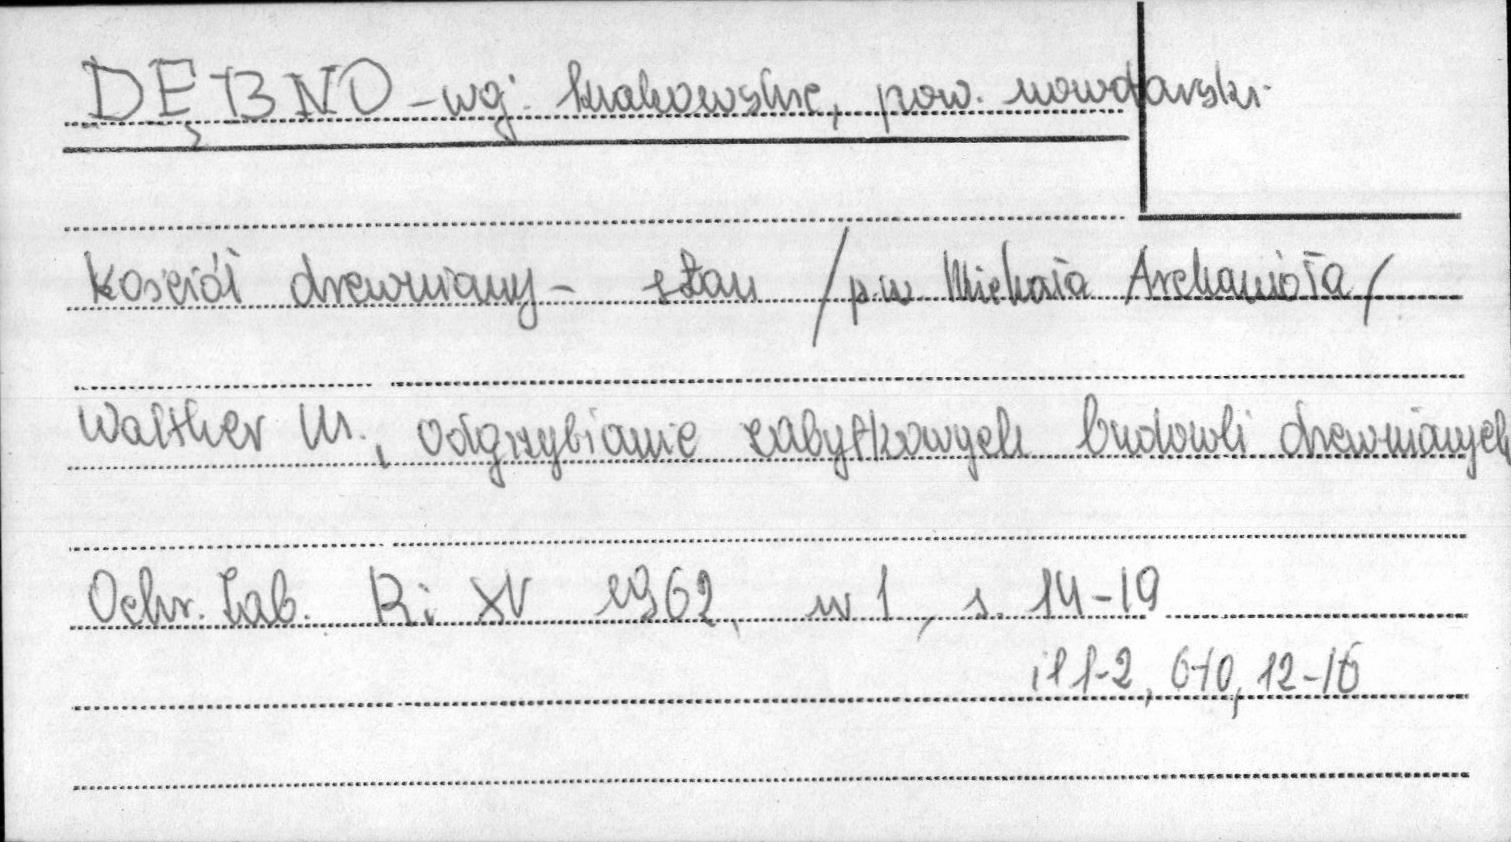 DĘBNO - woj. krakowskie, pow. nowotarski
Kościół drewniany - stan /p.w. Michała Archanioła/
Walther M., Odgrzybianie zabytkowych budowli drewnianych
Ochr. Zab. R: XV 1962, nr 1, s. 14-19
il 1-2, 6-10, 12-16